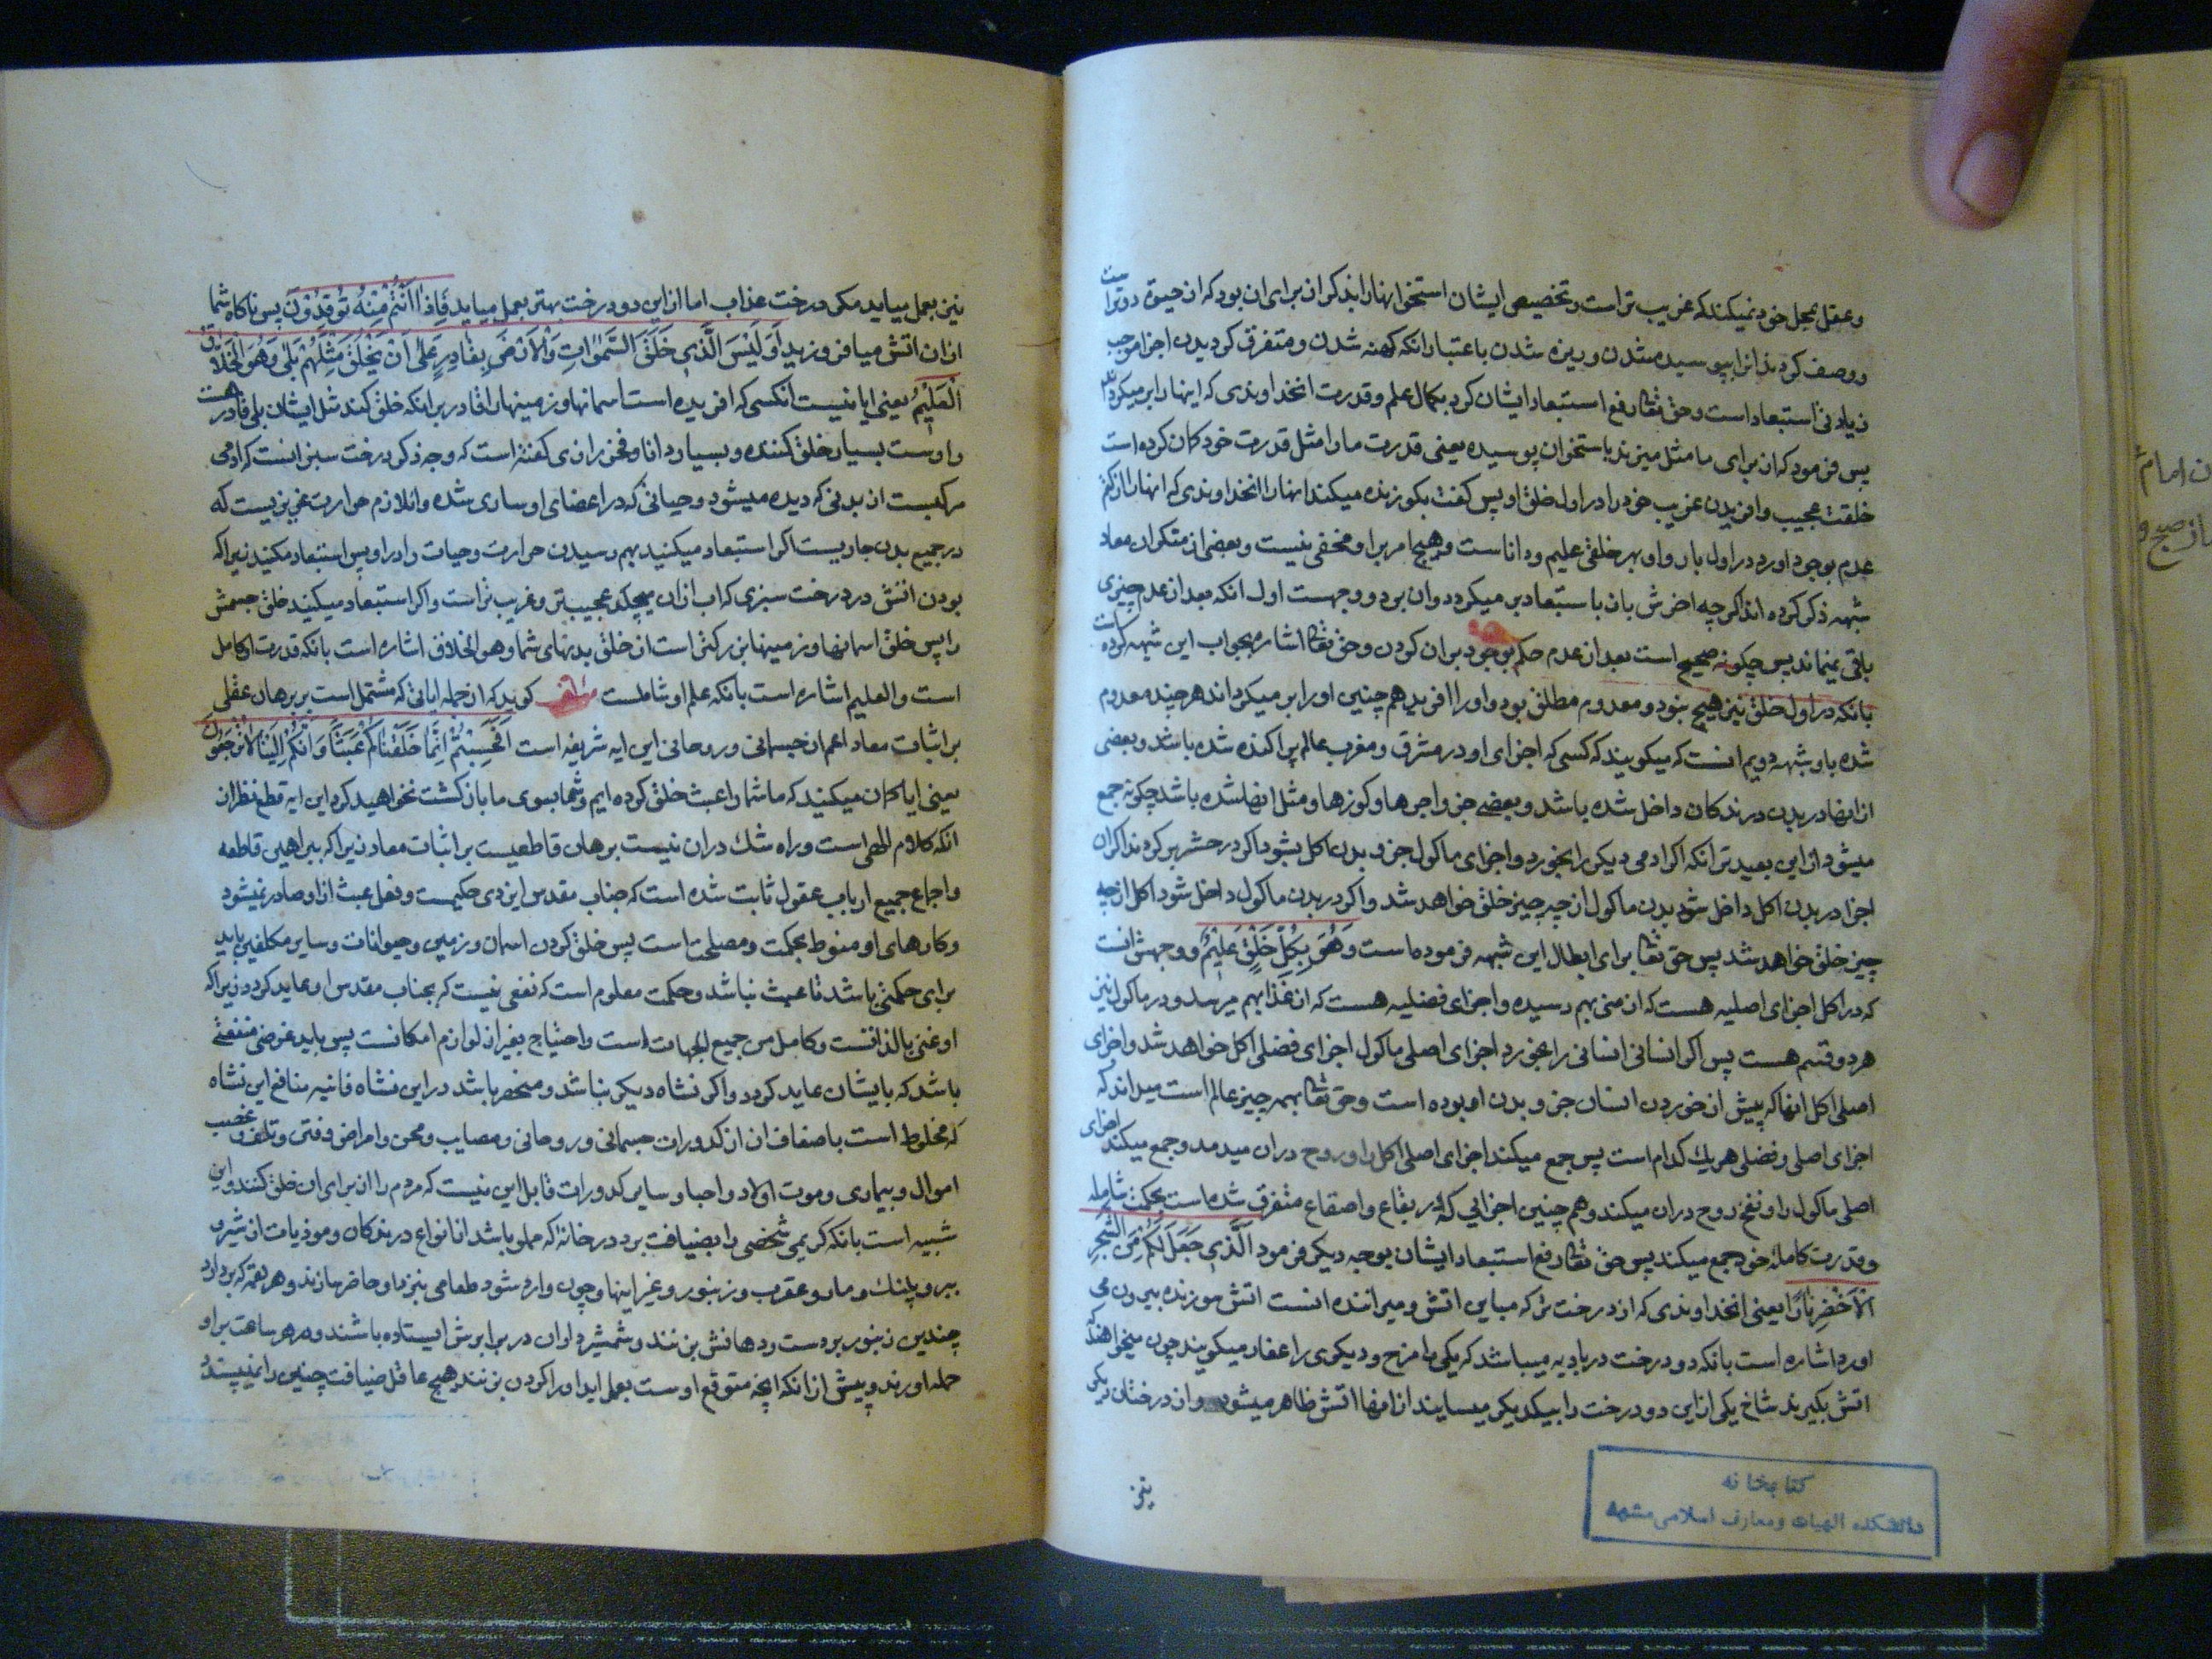 و عقل بعجل خود نمیکند که غریب تر است و تخصیص ایشان استخوانها را بذکر ازان برای ان بود که از حیوة دورتر است
و وصف کردند انرا بپوسیده شدن و ریزه شدن باعتبار انکه کهنه شدن و متفرق کردیدن اجزا موجب
زیادتی استبعاد است و حق تعالی رفع استبعاد ایشان کرد بکمال علم و قدرت انخداوندی که اینها را بر میکرداند
پس فرمود که ان برای ما مثل میزند باستخوان پوسیده یعنی قدرت ما را مثل قدرت خود کمان کرده است
خلقت عجیب و افریدن غریب خود را در اول خلق او پس کفت بکو زنده میکند انها را انخداوندی که انها را از کتم
عدم بوجود اورد در اول بار و او بهر خلقی علیم و داناست و هیچ امر بر او مخفی نیست و بعضی از منکران معاد
شبهه ذکر کرده اند اکرچه اخرش بان باستبعاد بر میکردد و ان بر دو وجهست اول انکه بعد از عدم چیزی
باقی نمیماند پس چکونه صحیح است بعد از عدم حکم بوجود بر ان کردن و حق تعالی اشاره بجواب این شبهه کرده است
بانکه در اول خلق نیز هیچ نبود و معدوم مطلق بود و او را افرید همچنین او را بر میکرداند هر چند معدوم
شده باو شبهه دویم انست که میکویند که کسی که اجزای او در مشرق و مغرب عالم پراکنده شده باشد و بعضی
از انها در بدن درندکان داخل شده باشد و بعضی جزو اجرها و کوزها و مثل انها شده باشد چکونه جمع
میشود از این بعید تر انکه اکر ادمی دیکری را بخورد و اجزای ماکول جزو بدن اکل بشود اکر در حشر بر کردند اکر ان
اجزا در بدن اکل داخل شود بدن ماکول از چه چیز خلق خواهد شد و اکر در بدن ماکول داخل شود اکل از چه
چیز خلق خواهد شد پس حق تعالی برای ابطال این شبهه فرموده است وَهُوَ بِكُلِّ خَلْقٍ عَلِيْمٌ و وجهش انست
که در اکل اجزای اصلیه هست که از منی بهم رسیده و اجزای فضلیه هست که از غذا بهم میرسد و در ماکول نیز
هر دو قسم هست پس اکر انسانی انسانی را بخورد اجزای اصلی ماکول اجزای فضلی اکل خواهد شد و اجزای
اصلی اکل انها که پیش از خوردن انسان جزو بدن او بوده است و حق تعالی بهمه چیز عالم است میداند که
اجزای اصلی و فضلی هر یک کدام است پس جمع میکند اجزای اصلی اکل را و روح در ان میدمد و جمع میکند اجزای
اصلی ماکول را و نفخ روح در ان میکند و همچنین اجزایی که در بقاع و اصقاع متفرق شده است بحکمت شامله
و قدرت کامله خود جمع میکند پس حق تعالی رفع استبعاد ایشان بوجه دیکر فرمود اَلَّذِي جَعَلَ لَكُمْ مِنَ الشَّجَرِ
اْلاَخْضَرِ نَارًا یعنی انخداوندی که از درخت تر که مباین اتش و میراننده انست اتش سوزنده بیرون می
اورد اشاره است بانکه دو درخت در بادیه میباشد که یکی را مرخ و دیکری را عفار میکویند چون میخواهند که
اتش بکیرند شاخ یکی از این دو درخت را بیکدیکر میسایند از انها اتش ظاهر میشود و از درختان دیکر
نیز
کتابخانه
دانشکده الهیات و معارف اسلامی مشهد
نیز بعمل میاید مکر درخت عذاب اما از این دو درخت بهتر بعمل میاید فَاِذٰا اَنْتُمْ مِنْهُ تُوقِدُونَ پس ناکاه شما
از ان اتش میافروزید اَوَلَيْسَ الَّذِي خَلَقَ السَّمٰوٰاتِ وَاْلاَرْضَ بِقٰادِرٍ عَلٰى اَنْ يَخْلُقَ مِثْلَهُمْ بَلٰى وَهُوَ الْخَلاّٰقُ
الْعَلِيْمُ یعنی ایا نیست انکسی که افریده است اسمانها و زمینها را قادر بر انکه خلق کند مثل ایشان بلی قادر هست
و اوست بسیار خلق کننده و بسیار دانا و فخر رازی کفته است که وجه ذکر درخت سبز انست که ادمی
مرکبست از بدنی که دیده میشود و حیاتی که در اعضای او ساری شده و انلازم حرارت غریزیست که
در جمیع بدن جاریست اکر استبعاد میکنید بهم رسیدن حرارت و حیات را در او پس استبعاد مکنید زیرا که
بودن اتش در درخت سبزی که اب از ان میچکد عجیب تر و غریب تر است و اکر استبعاد میکنید خلق جسمش
را پس خلق اسمانها و زمینها بزرکتر است از خلق بدنهای شما و هو الخلاق اشاره است بانکه قدرت او کامل
است و العلیم اشاره است بانکه علم او شاملست مؤلف کوید که از جمله ایاتی که مشتمل است بر برهان عقلی
بر اثبات معاد اعم از جسمانی و روحانی این ایه شریفه است اَفَحَسِبْتُمْ اَنَّمٰا خَلَقْنٰاكُمْ عَبَثًا وَاَنَّكُمْ اِلَيْنٰا لاٰ تُرْجَعُونَ
یعنی ایا کمان میکنید که ما شما را عبث خلق کرده ایم و شما بسوی ما بازکشت نخواهید کرد این ایه قطع نظر از
انکه کلام الهی است و راه شک در ان نیست برهان قاطعیست بر اثبات معاد زیرا که ببراهین قاطعه
و اجماع جمیع ارباب عقول ثابت شده است که جناب مقدس ایزدی حکیمست و فعل عبث از او صادر نمیشود
و کارهای او منوط بحکمت و مصلحت است پس خلق کردن اسمان و زمین و حیوانات و سایر مکلفین باید
برای حکمتی باشد تا عبث نباشد و حکمت معلوم است که نفعی نیست که بجناب مقدس او عاید کردد زیرا که
او غنی بالذاتست و کامل من جمیع الجهات است و احتیاج بغیر از لوازم امکانست پس باید غرض منفعتی
باشد که بایشان عاید کردد و اکر نشاه دیکر نباشد و منحصر باشد در این نشاه فانیه منافع این نشاه
که مخلوط است باضعاف ان از کدورات جسمانی و روحانی و مصایب و محن و امراض و فتن و تلف و غصب
اموال و بیماری و موت اولاد و احبا و سایر کدورات قابل این نیست که مردم را از برای ان خلق کنند و این
شبیه است بانکه کریمی شخصی را بضیافت برد در خانهٔ که مملو باشد از انواع درندکان و موذیات از شیر و
ببر و پلنک و مار و عقرب و زنبور و غیر اینها و چون وارد شود طعامی بنزد او حاضر سازند و هر لقمه که بردارد
چندین زنبور بر دست و دهانش بزنند و شمشیر داران در برابرش ایستاده باشند و در هر ساعت بر او
حمله اورند و پیش از انکه انچه متوقع اوست بعمل اید او را کردن بزنند هیچ عاقل ضیافت چنین را نمیپسندد